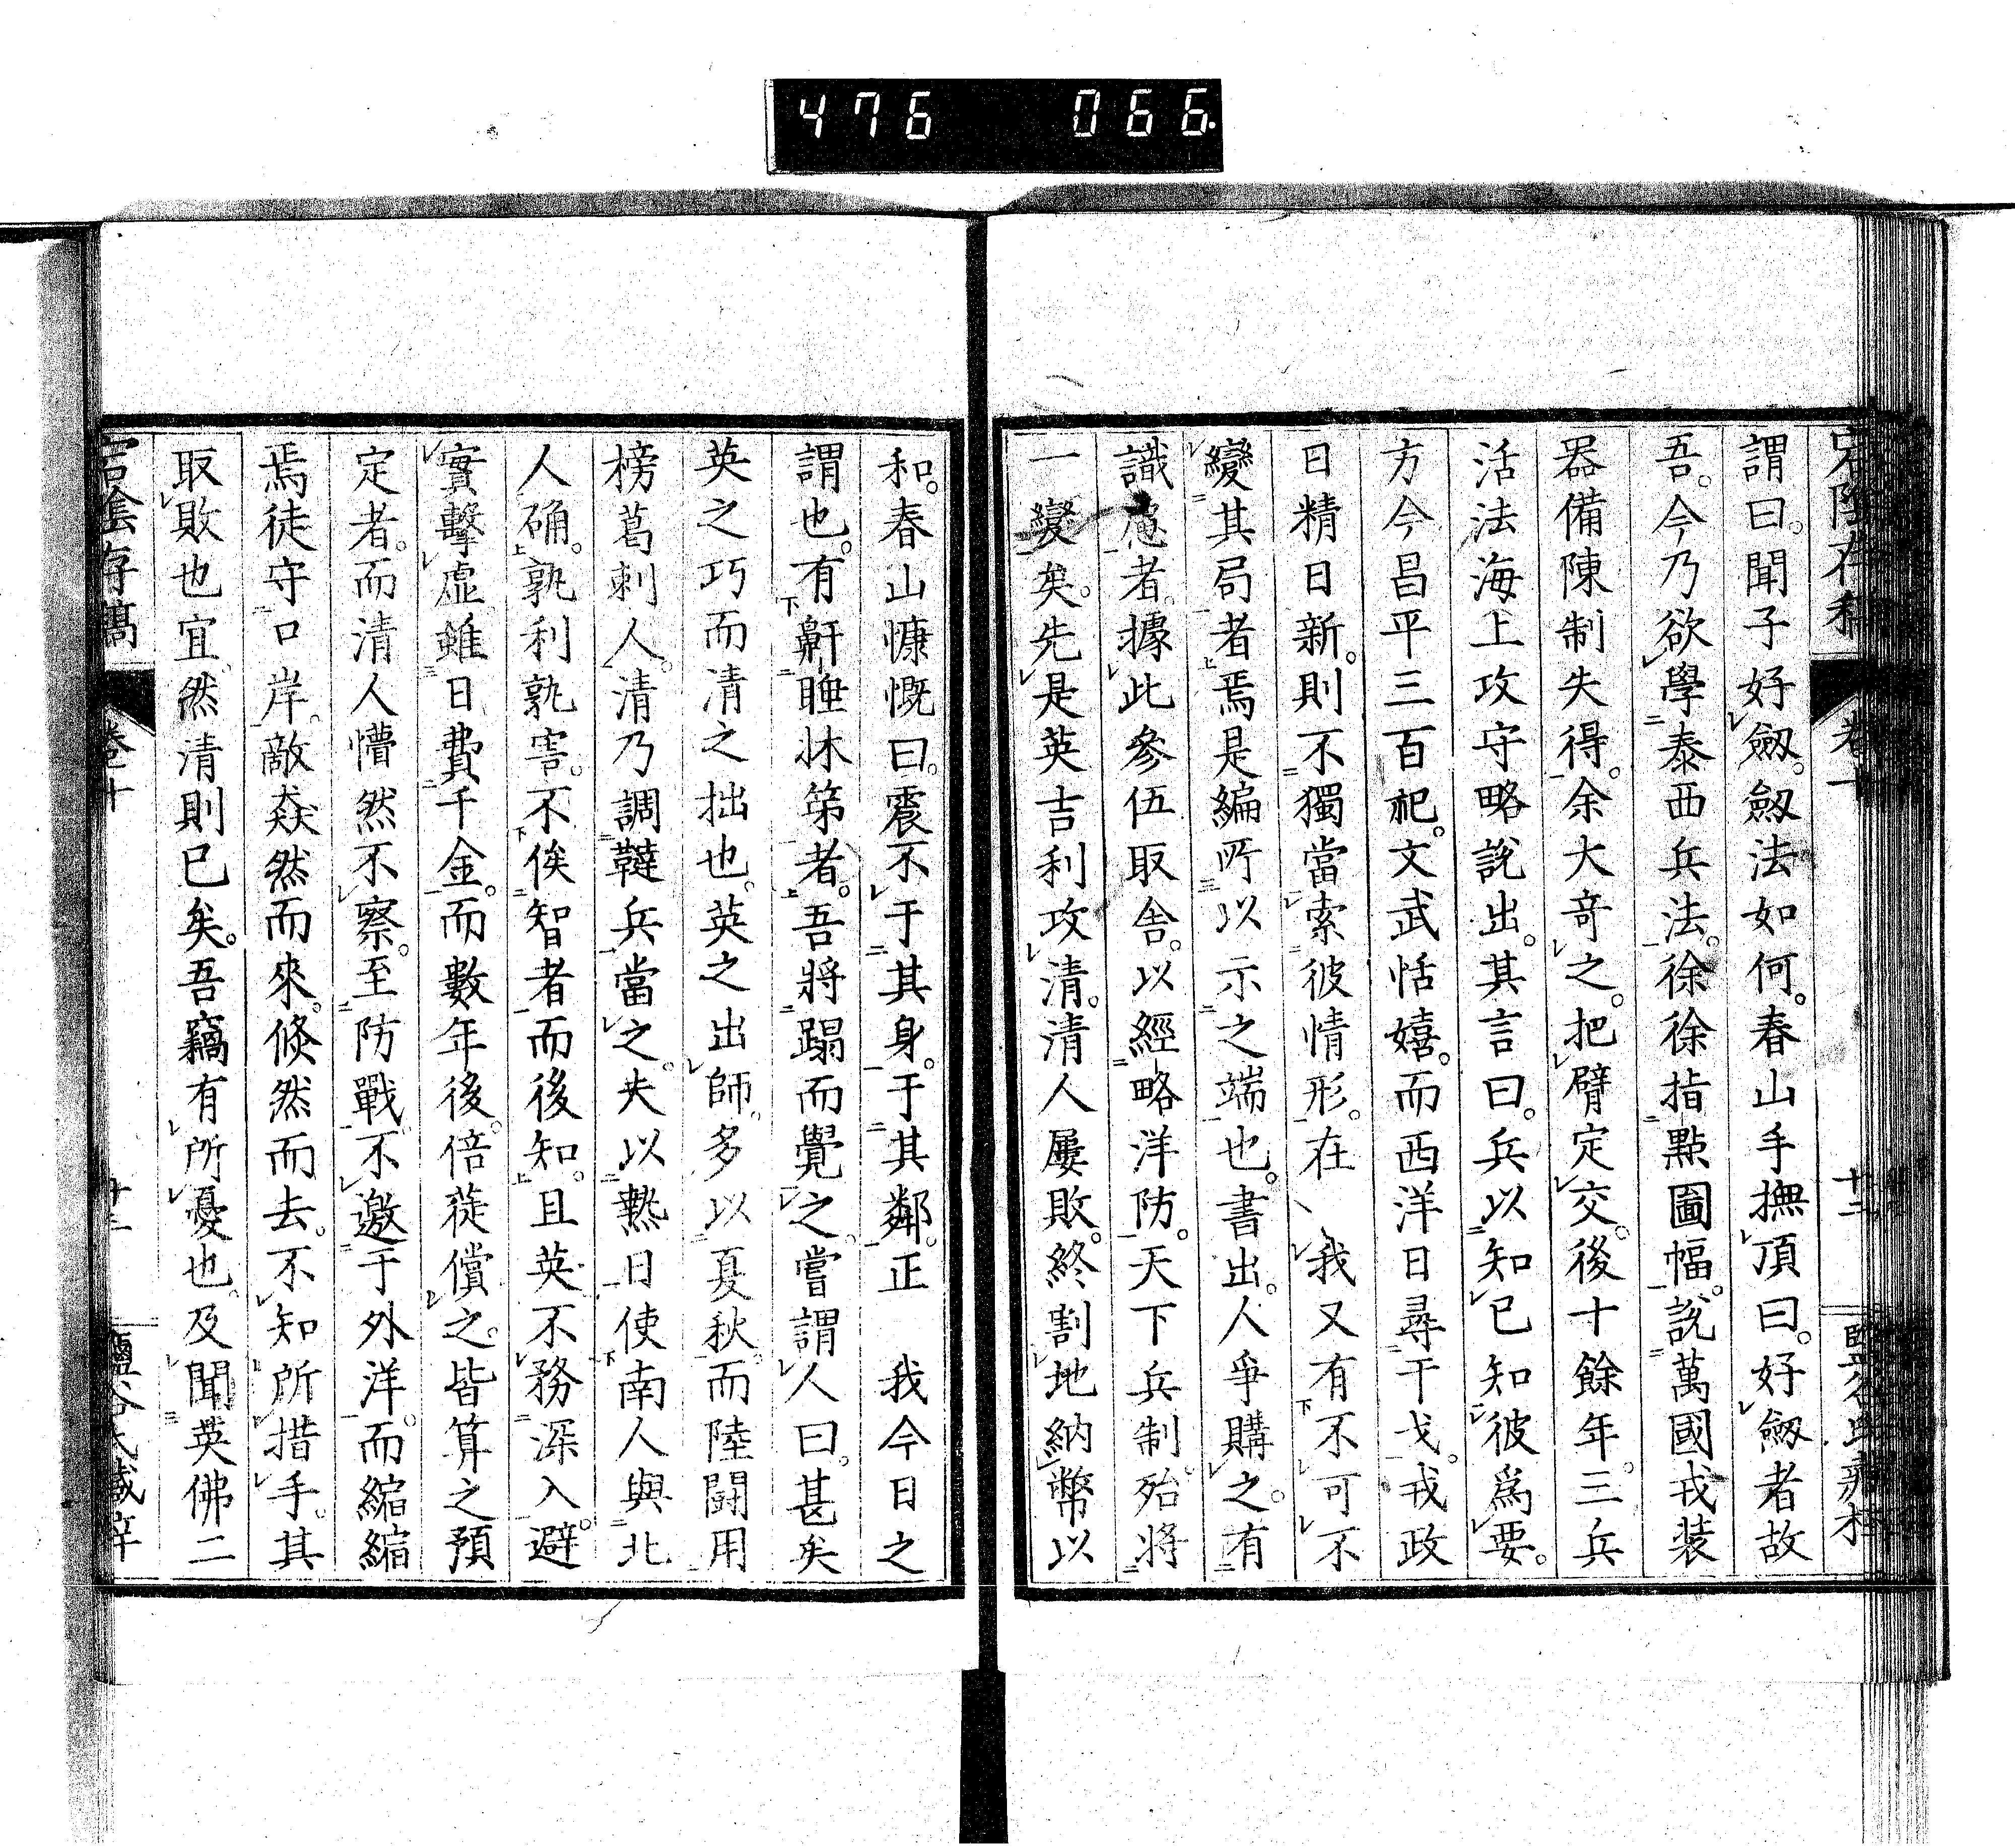 476 066.
宕陰存稿
卷十
十二
謂曰。聞子好劒。劒法如何。春山手撫頂曰。好劒者故
吾。今乃欲學泰西兵法。徐徐指點圖幅。說萬國戎裝
器備陳制失得。余大竒之。把臂定交。後十餘年。三兵
活法海上攻守略說出。其言曰。兵以知已知彼爲要。
方今昌平三百祀。文武恬嬉。而西洋日尋干戈。戎政
日精日新。則不獨當索彼情形。在 我又有不可不
變其局者焉。是編所以示之端也。書出。人爭購之。有
識慮者。據此參伍取舍。以經略洋防。天下兵制。殆將
一變矣。先是英吉利攻清。清人屢敗。終割地納幣以
和。春山慷慨曰。震不于其身。于其鄰。正 我今日之
謂也。有鼾睡牀笫者。吾將蹋而覺之。嘗謂人曰。甚矣
英之巧而清之拙也。英之出師。多以夏秋。而陸鬪用
榜葛剌人。清乃調韃兵當之。夫以熱日使南人與北
人确。孰利孰害。不俟智者而後知。且英不務深入。避
實擊虛。雖日費千金。而數年後。倍蓰償之。皆算之預
定者。而清人懵然不察。至防戰不邀于外洋。而縮縮
焉徒守口岸。敵猋然而來。倏然而去。不知所措手。其
取敗也宜。然清則已矣。吾竊有所憂也。及聞英佛二
宕陰存稿
卷十
十三